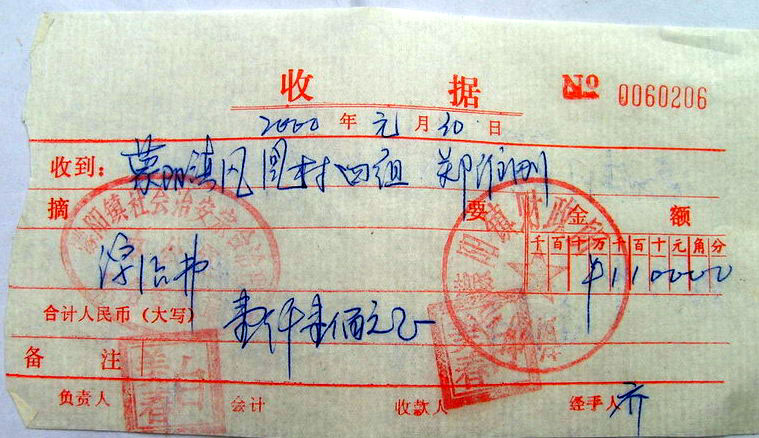 收 据 No 0060206
2000 年 元 月 30 日
收到: 蒙阳镇凤凰村四组 郑
摘 要 金 额
千 百 十 万 千 百 十 元 角 分
综治费 ¥110000
合计人民币（大写） 壹仟壹佰元正
备 注
负责人 会计 收款人 经手人 齐
蒙阳镇社会治安综合治
蒙阳镇财政